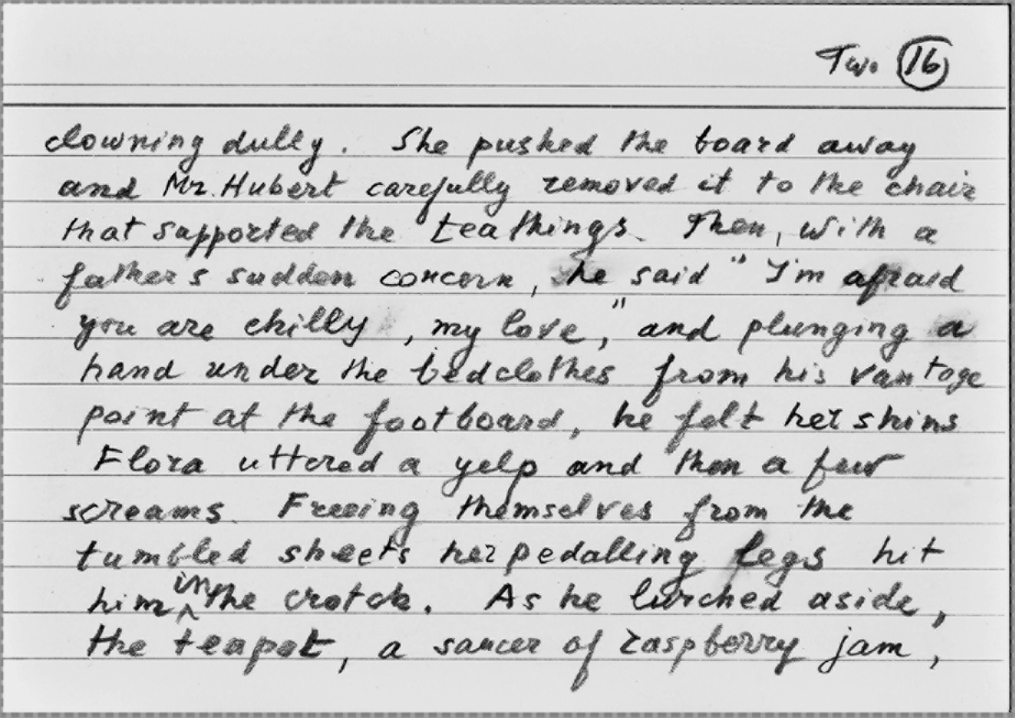 Two 16
clowning dully. She pushed the board away
and Mr. Hubert carefully removed it to the chair
that supported the teathings. Then, with a
father's sudden concern, he said "I'm afraid
you are chilly, my love," and plunging a
hand under the bedclothes from his vantage
point at the footboard, he felt her shins
Flora uttered a yelp and then a few
screams. Freeing themselves from the
tumbled sheets her pedalling legs hit
him in the crotch. As he lurched aside,
the teapot, a saucer of raspberry jam,